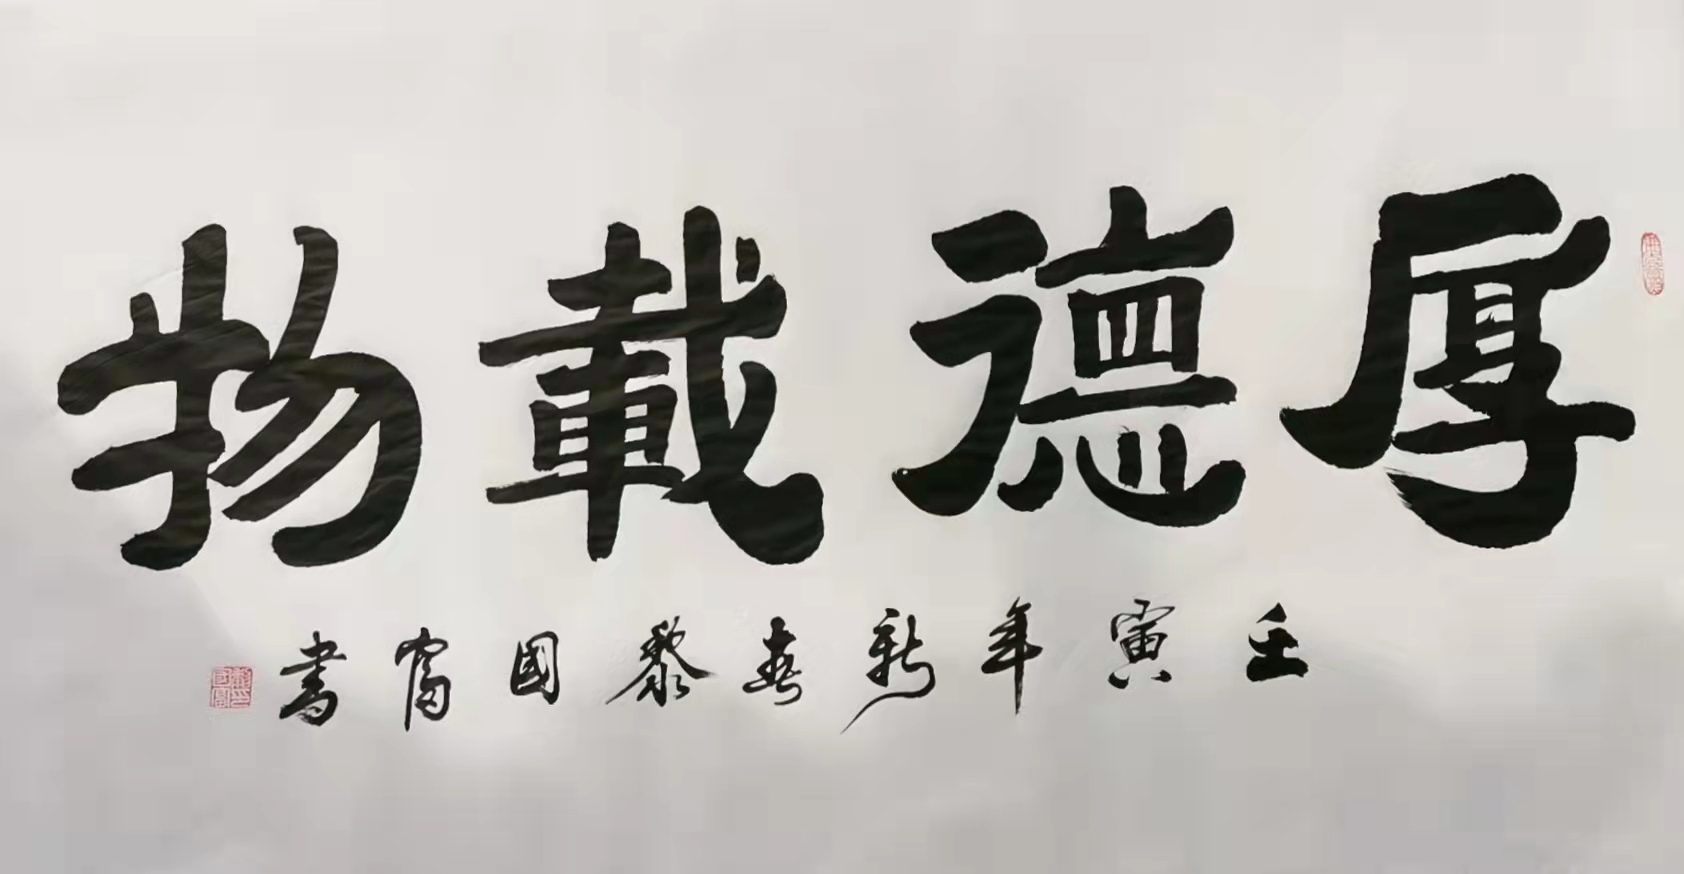 厚德載物
壬寅年新春黎國富書